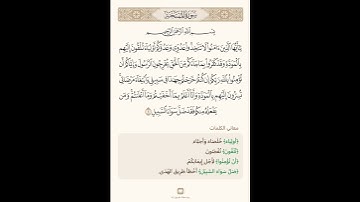 سورة الممتحنة
بسم الله الرحمن الرحيم
يَٰٓأَيُّهَا ٱلَّذِينَ ءَامَنُوا۟ لَا تَتَّخِذُوا۟ عَدُوِّى وَعَدُوَّكُمْ أَوْلِيَآءَ تُلْقُونَ إِلَيْهِم
بِٱلْمَوَدَّةِ وَقَدْ كَفَرُوا۟ بِمَا جَآءَكُم مِّنَ ٱلْحَقِّ يُخْرِجُونَ ٱلرَّسُولَ وَإِيَّاكُمْ أَن
تُؤْمِنُوا۟ بِٱللَّهِ رَبِّكُمْ إِن كُنتُمْ خَرَجْتُمْ جِهَٰدًا فِى سَبِيلِى وَٱبْتِغَآءَ مَرْضَاتِى
تُسِرُّونَ إِلَيْهِم بِٱلْمَوَدَّةِ وَأَنَا۠ أَعْلَمُ بِمَآ أَخْفَيْتُمْ وَمَآ أَعْلَنتُمْ وَمَن
يَفْعَلْهُ مِنكُمْ فَقَدْ ضَلَّ سَوَآءَ ٱلسَّبِيلِ ١
معاني الكلمات
﴿أَوْلِيَاءَ﴾ خُلَصَاءَ وَأَحِبَّاءَ.
﴿تُلْقُونَ﴾ تُفْضُونَ.
﴿أَن تُؤْمِنُوا﴾ لِأَجْلِ إِيمَانِكُمْ.
﴿ضَلَّ سَوَاءَ السَّبِيلِ﴾ أَخْطَأَ طَرِيقَ الْهُدَى.